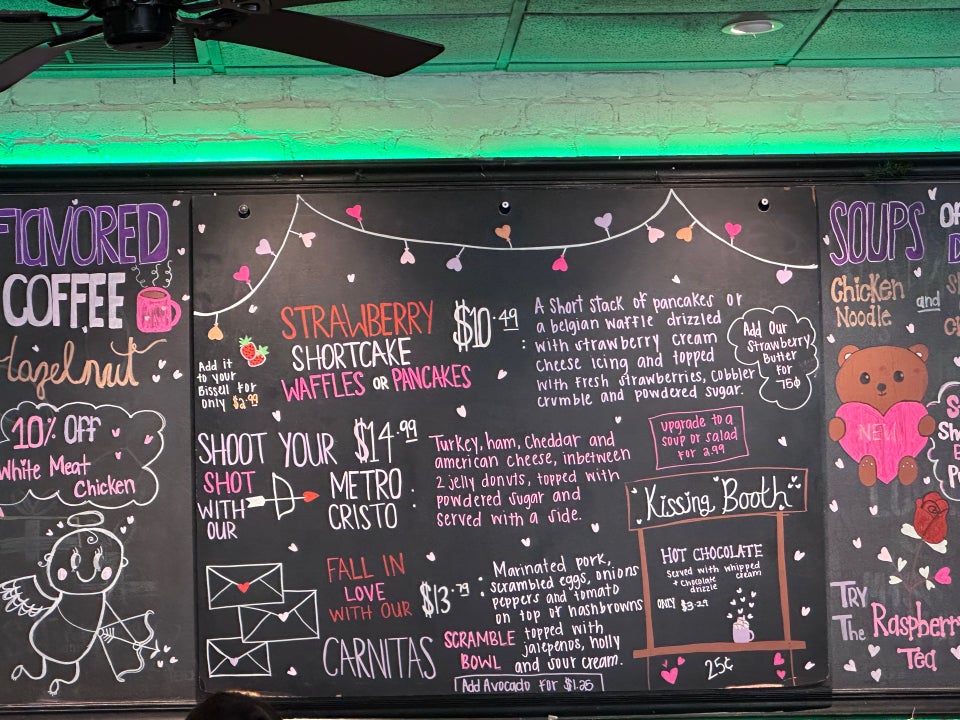 FLAVORED
COFFEE
Hazelnut
10% OFF
White Meat
Chicken
STRAWBERRY
SHORTCAKE
WAFFLES OR PANCAKES
$10.49
:
Add it
to your
Bissell For
only $2.99
A Short stack of pancakes or
a belgian waffle drizzled
with strawberry cream
cheese icing and topped
with fresh strawberries, cobbler
crumble and powdered sugar.
Add Our
Strawberry
Butter
For
75¢
SHOOT YOUR
SHOT
WITH
OUR
$14.99
METRO
CRISTO :
Turkey, ham, Cheddar and
american cheese, inbetween
2 jelly donuts, topped with
powdered sugar and
served with a side.
upgrade to a
soup or salad
For 2.99
FALL IN
LOVE
WITH OUR
$13.79 :
CARNITAS
SCRAMBLE
BOWL
Marinated pork,
scrambled eggs, onions
peppers and tomato
on top of hashbrowns
topped with
jalepenos, holly
and sour cream.
Add Avocado For $1.25
Kissing Booth
HOT CHOCOLATE
Served with whipped
cream
+ Chocolate
drizzle
ONLY $3.29
25¢
SOUPS
Chicken
Noodle
and
NEW
TRY
The Raspberry
Tea